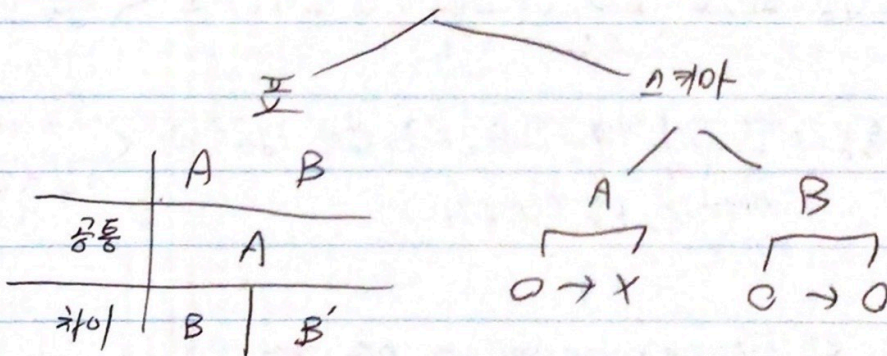 표 스키마
A B
공통 A
차이 B B'
A B
O → X O → O